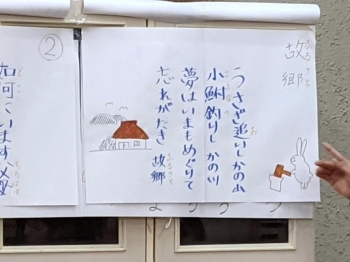 故郷
うさぎ追いしかの山
小鮒釣りしかの川
夢はいまもめぐりて
忘れがたき 故郷
②
如何にいます父母